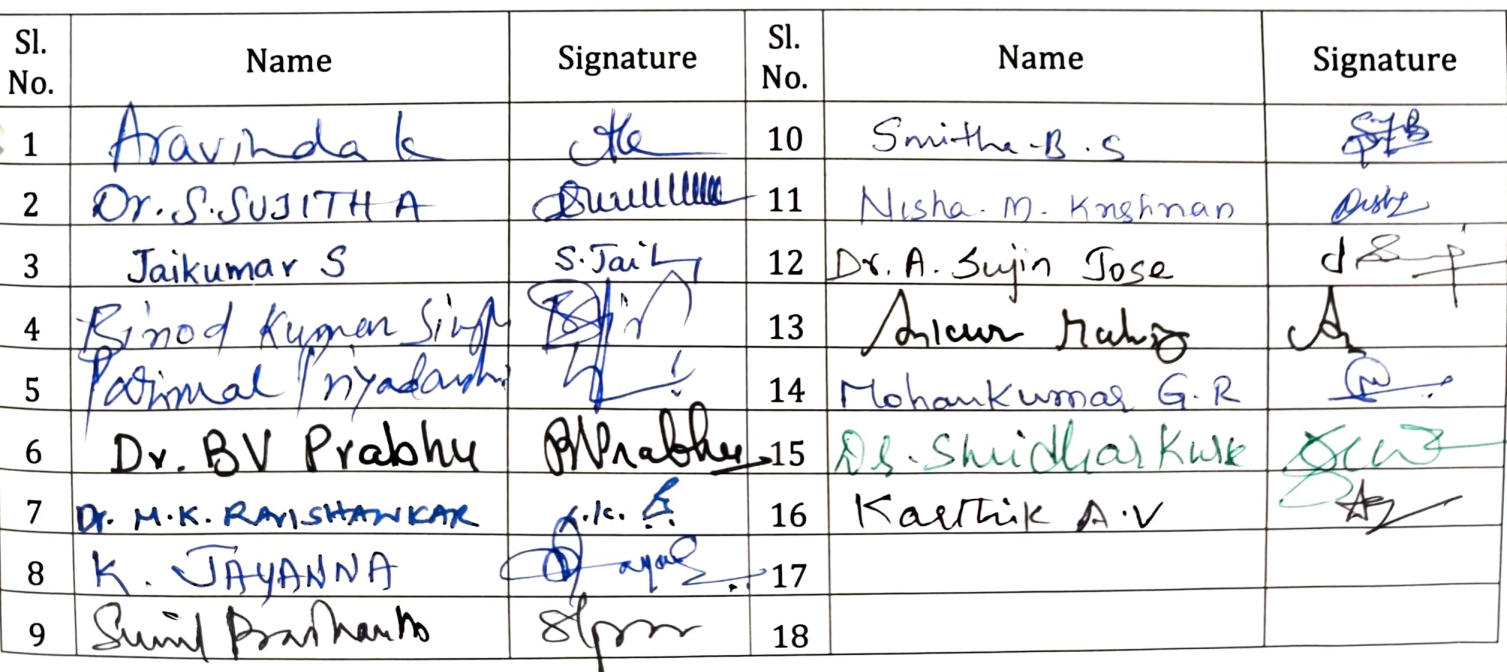 Sl. No. Name Signature Sl. No. Name Signature
1 Aravinda k 10 Smitha.B.S
2 Dr.S.SUJITHA 11 Nisha.M.Krishnan
3 Jaikumar S S.Jai 12 Dr.A.Sujin Jose
4 Binod Kumar Singh 13 Ankur
5 Parimal Priyadarshi 14 Mohankumar G.R
6 Dr.BV Prabhu BVPrabhu 15 Dr.Shridhar Kurk
7 Dr.M.K.RAVISHANKAR 16 Karthik A.V
8 K.JAYANNA 17
9 Sunil Prashanth 18